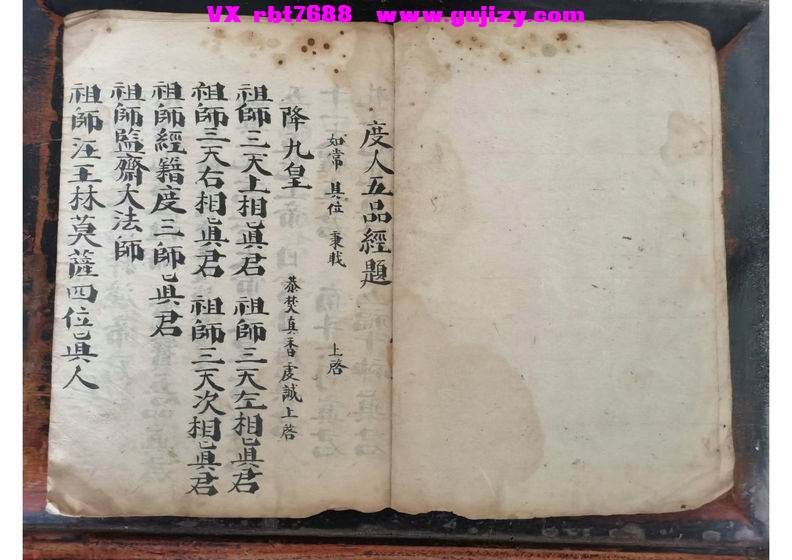 VX rbt7688 www.gujizy.com
度人五品經題
如常 具位 秉職 上啓
降九皇 恭焚真香虔誠上啓
祖師三天上相眞君 祖師三天左相眞君
祖師三天右相眞君 祖師三天次相眞君
祖師經籍度三師眞君
祖師監齋大法師
祖師汪王林莫薩四位眞人